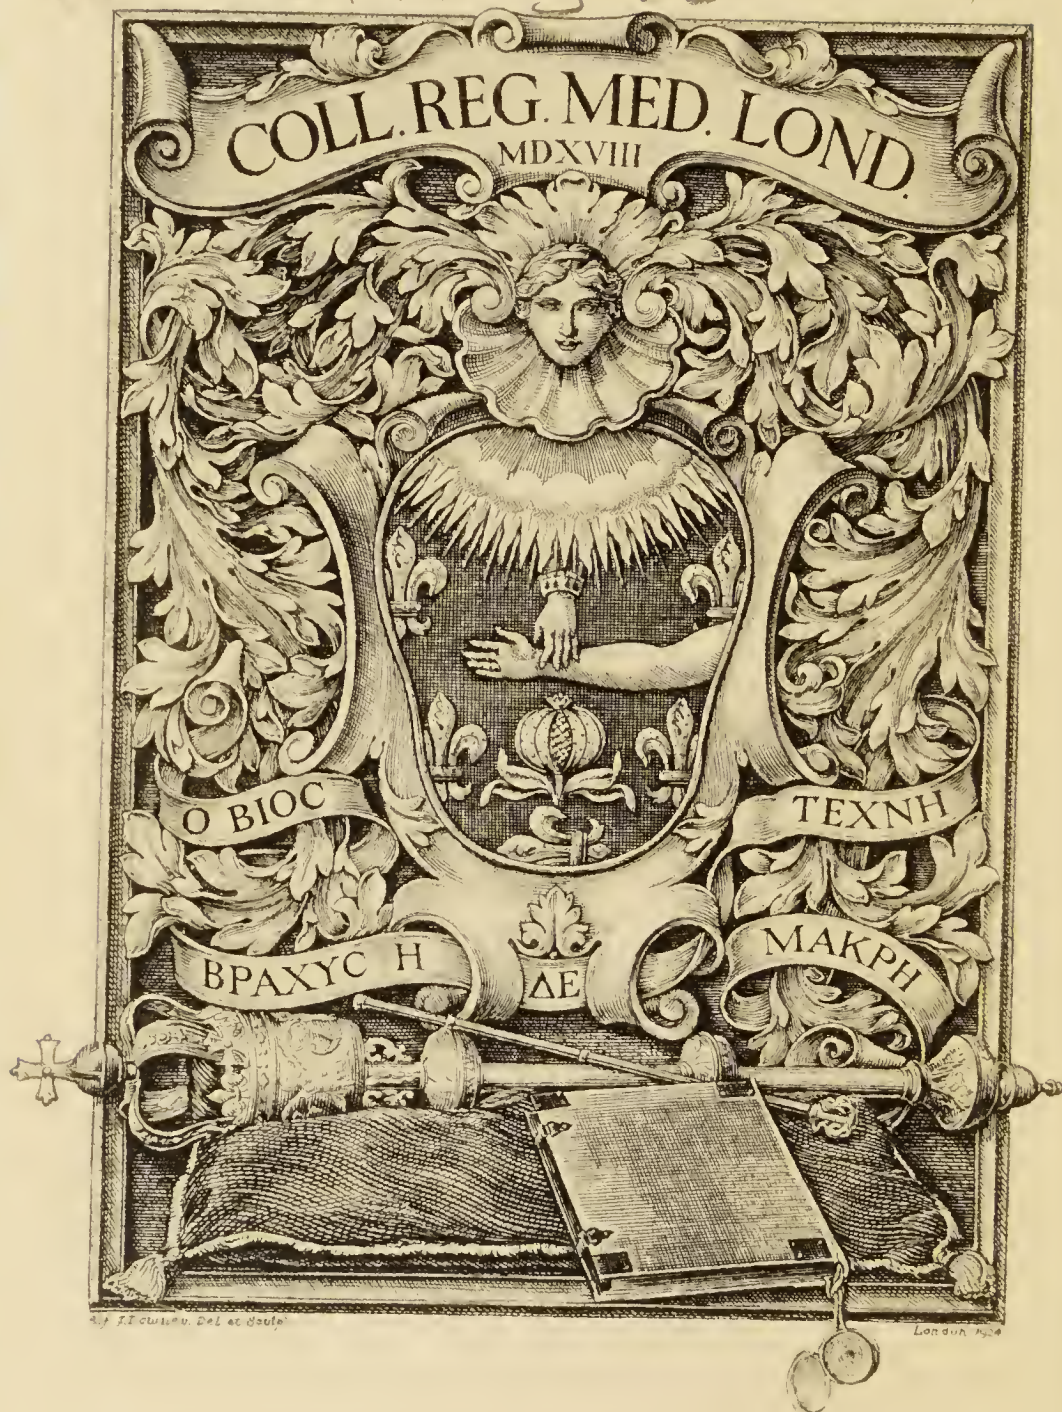 COLL. REG. MED. LOND.
MDXVIII
Ο ΒΙΟC
ΒΡΑΧΥC Η
ΔΕ
ΤΕΧΝΗ
ΜΑΚΡΗ
Del et Sculp
London 1924